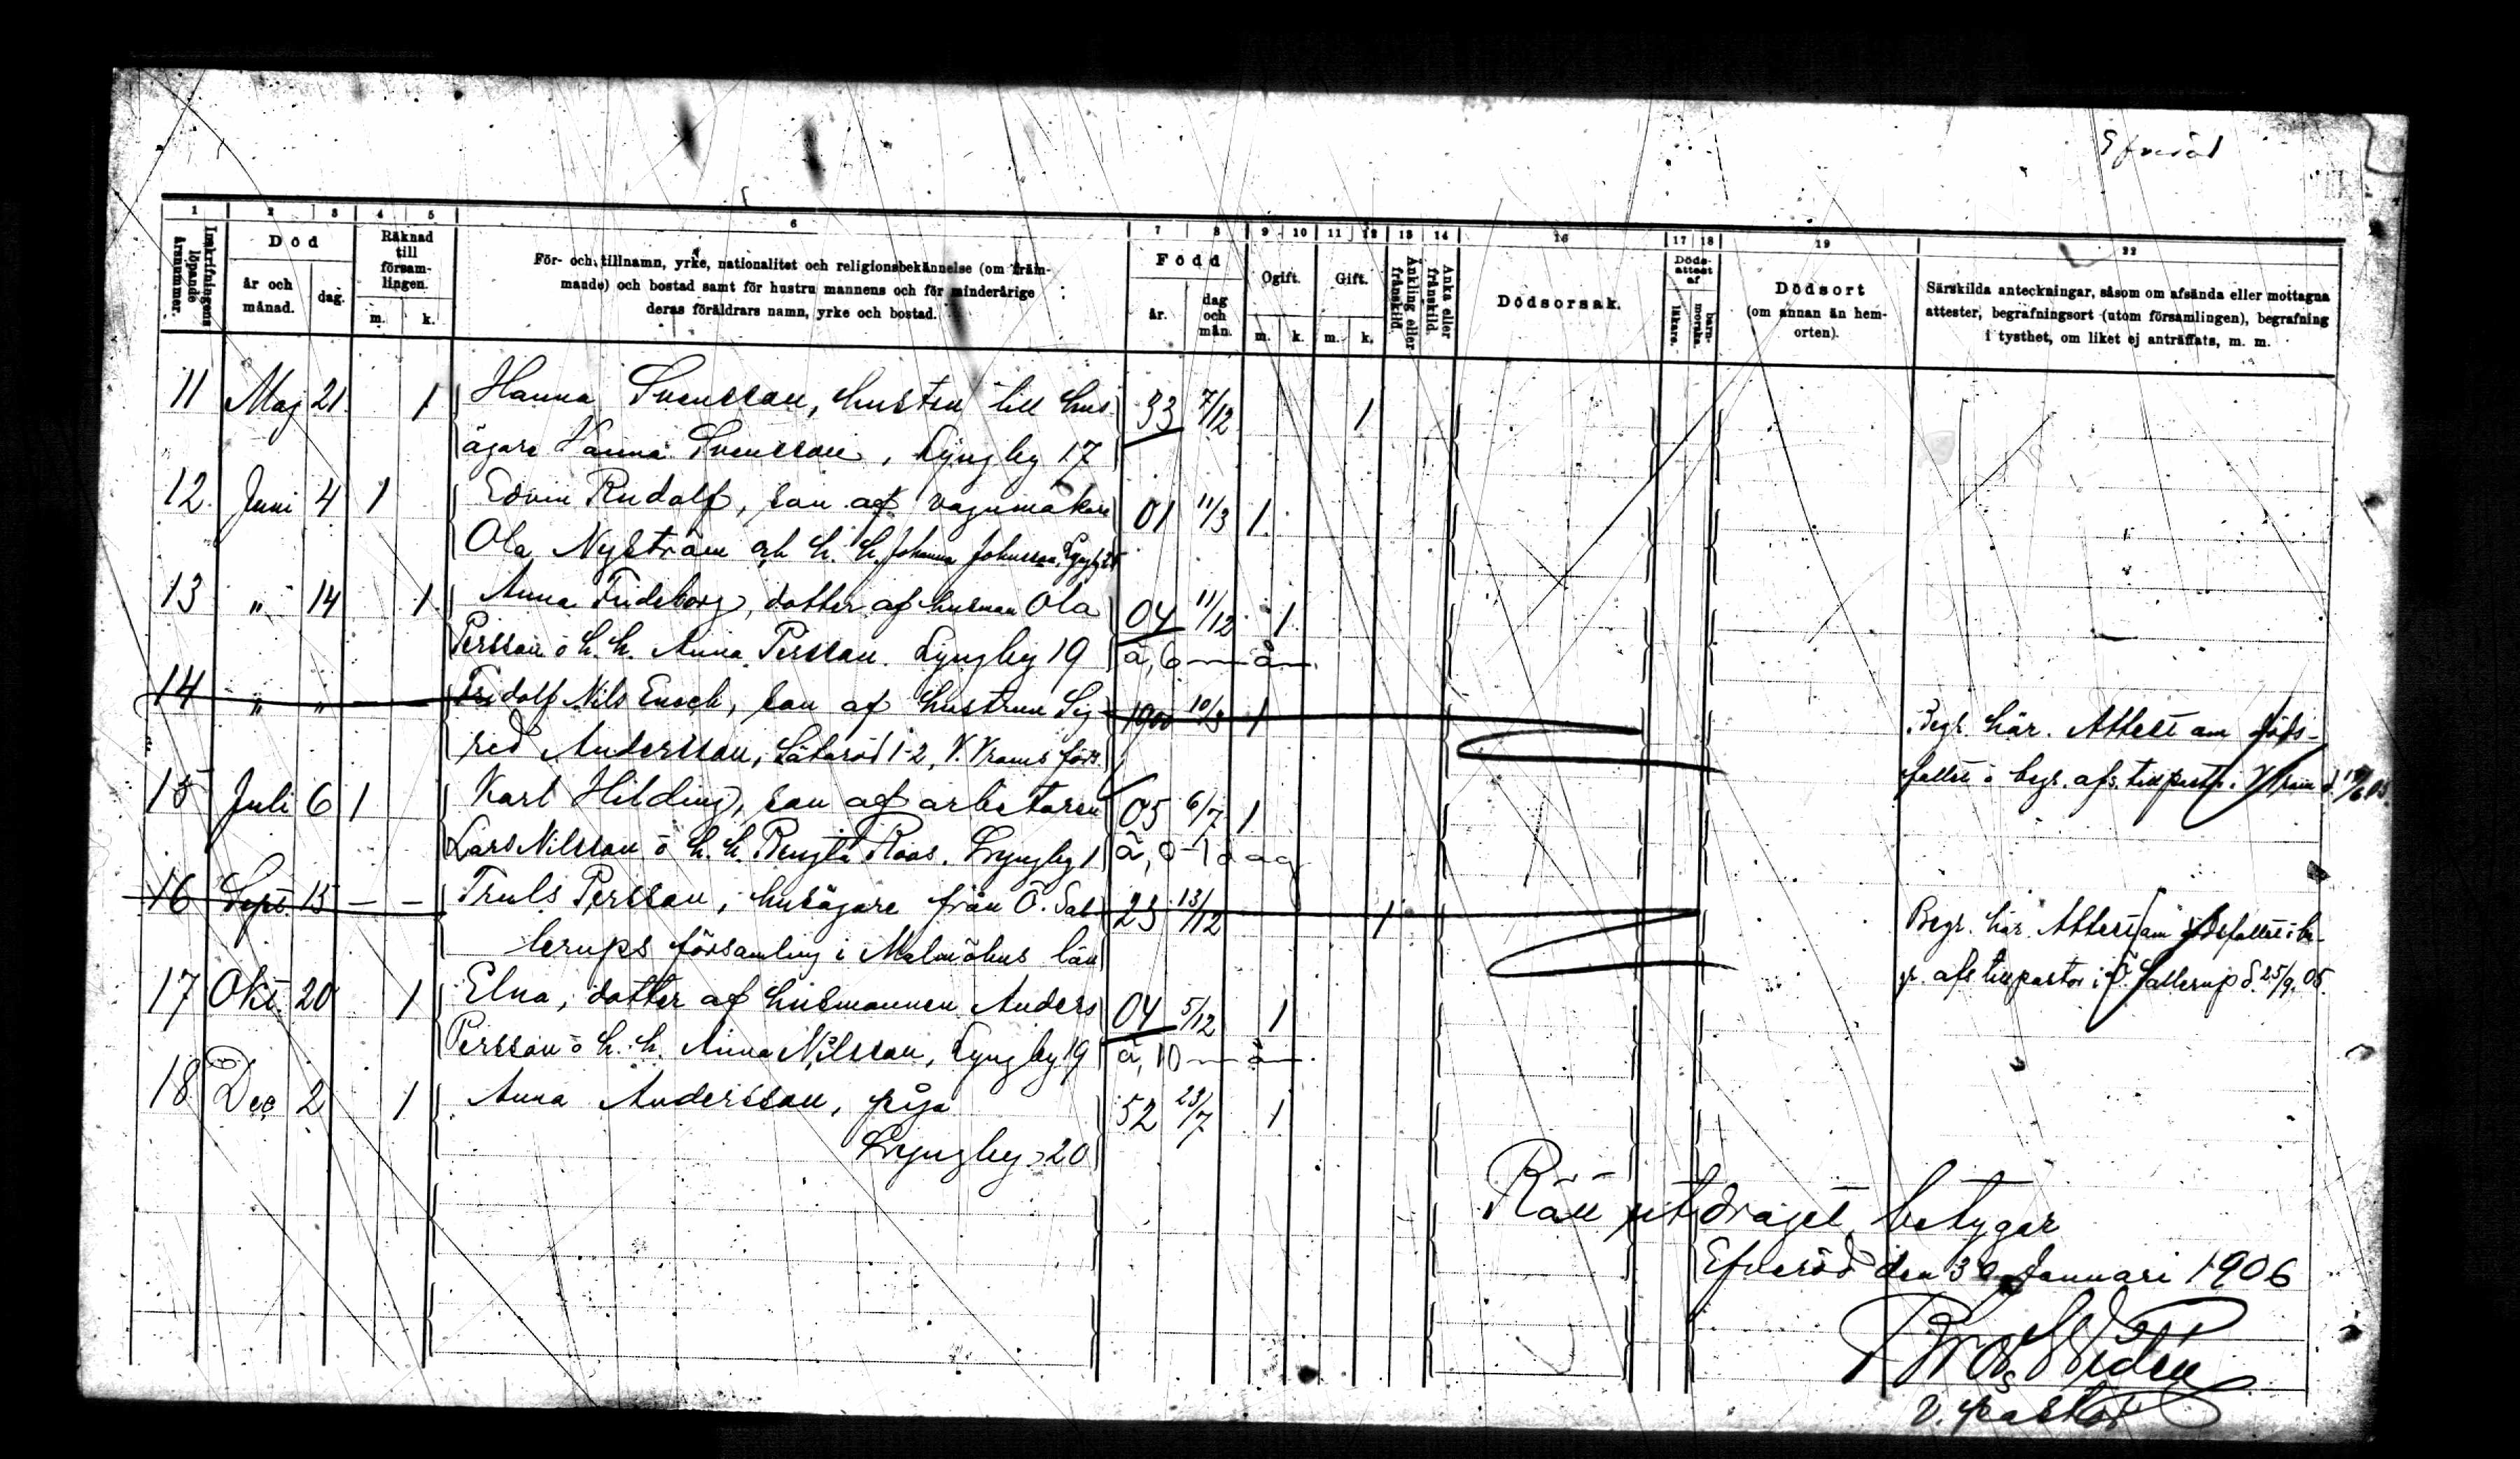 Efveröd
1 2 3 4 5 6 7 8 9 10 11 12 13 14 16 17 18 19 22
Inskrifningens löpande årsnummer.
Död
år och månad.
dag.
Räknad till församlingen.
m. k.
För- och tillnamn, yrke, nationalitet och religionsbekännelse (om främ-
mande) och bostad samt för hustru mannens och för minderårige
deras föräldrars namn, yrke och bostad.
Född
år.
dag och mån.
Ogift.
m. k.
Gift.
m. k.
Änkling eller frånskild.
Änka eller frånskild.
Dödsorsak.
Döds-attest af
läkare.
barn-morska.
Dödsort
(om annan än hem-
orten).
Särskilda anteckningar, såsom om afsända eller mottagna
attester, begrafningsort (utom församlingen), begrafning
i tysthet, om liket ej anträffats, m. m.
11 Maj 21 1 Hanna Svensson, hustru till hus 33 7/12 1
ägare Svensson, Lyngby 17
12. Juni 4 1 Edvin Rudolf, son af vagnmakare 01 11/3 1
Ola Nyström och h. h. Johanna Johnsson, Lyngby
13 " 14 1 Anna Frideborg, dotter af husman Ola 04 11/12 1
Persson o h. h. Anna Persson. Lyngby 19 å, 6 m ån
14 " " Fridolf Nils Enoch, son af hustrun Sig- 1900 10/3 1 Begr. här. Attest om döds-
rid Andersson, Sätaröd 1-2, V. Vrams förs. fallet o begr. afs. till past. V Vram d.
15 Juli 6 1 Karl Hilding, son af arbetaren 05 6/7 1
Lars Nilsson o h. h. Bengta Roos. Lyngby 1 å, 0 1 dag
16 Sept. 15 - - Truls Persson, husägare från Ö. Sal 23 13/12 1 Begr. här Attest om dödsfallet o be-
lerups församling i Malmöhus län gr. afs till pastor i Ö. Sallerup d. 25/9. 05.
17 Okt. 20 1 Elna, dotter af husmannen Anders 04 5/12 1
Persson o h. h. Anna Nilsson, Lyngby 19 å, 10 m ån.
18 Dec 2 1 Anna Andersson, piga 52 23/7 1
Lyngby 20
Rätt utdraget, betygar
Efveröd den 30 Januari 1906
Widén
v. pastor